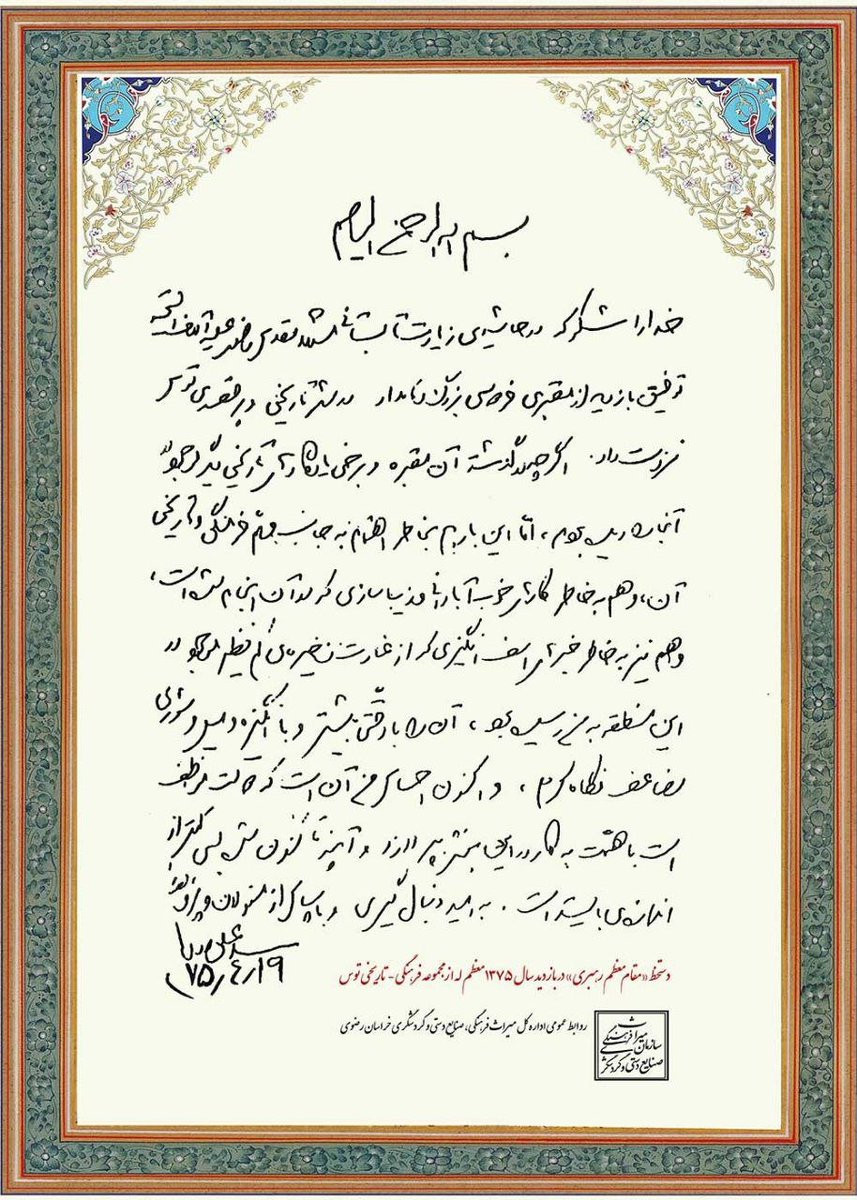 بسم الله الرحمن الرحیم
خدا را شکر که در حاشیه‌ی زیارت تابستانی مشهد مقدس
توفیق بازدید از مقبره‌ی فردوسی بزرگ و نامدار در شهر تاریخی و پرقصه‌ی توس
نیز دست داد. اگرچه در گذشته آن مقبره و برخی یادگارهای تاریخی دیگر موجود در
آنجا را دیده بودم، اما این بار هم بخاطر اهتمام به جانب مهم فرهنگی و تاریخی
آن، و هم به خاطر کارهای خوب آبادانی و زیباسازی که در آن انجام شده است،
و هم نیز به خاطر خبرهای اسف انگیزی که از غارت ذخیره‌های کم نظیر موجود در
این منطقه به من رسیده بود، آن را با دقتی بیشتر و با انگیزه و میل و شوری
مضاعف نگاه کردم، و اکنون احساس من آن است که دولت موظف
است با همت به کار در این بخش بپردازد و آنچه تاکنون شده بسی کمتر از
اندازه‌ی بایسته است. به امید دنبال گیری و با سپاس از مسئولان
سید علی خامنه‌ای
۷۵٫۴٫۱۹
دستخط «مقام معظم رهبری» در بازدید سال ۱۳۷۵ معظم له از مجموعه فرهنگی - تاریخی توس
روابط عمومی اداره کل میراث فرهنگی، صنایع دستی و گردشگری خراسان رضوی
سازمان میراث فرهنگی
صنایع دستی و گردشگری